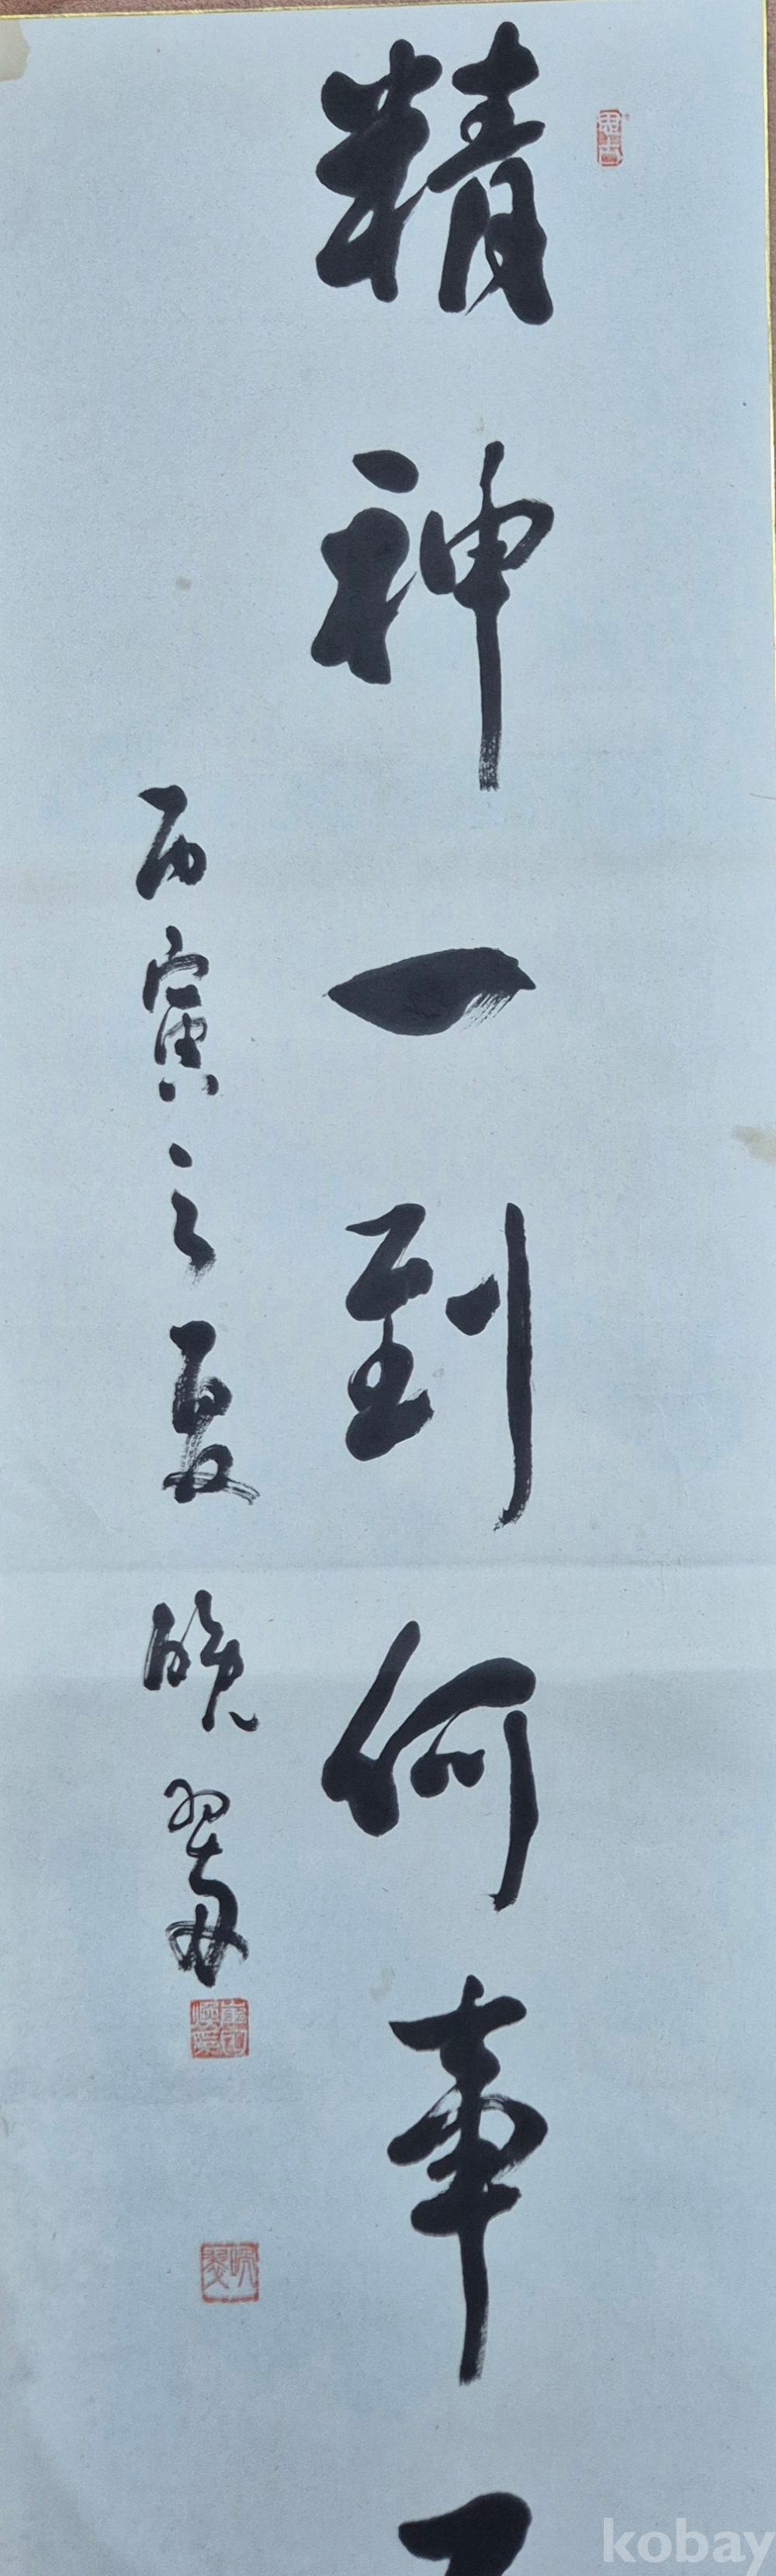 精神一到何事
丙寅之夏 晩翠
kobay